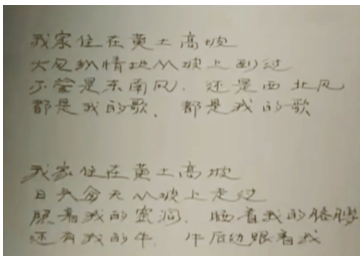 我家住在黄土高坡
大风纵情地从坡上刮过
不管是东南风，还是西北风
都是我的歌，都是我的歌
我家住在黄土高坡
日头每天从坡上走过
照着我的窑洞，晒着我的胳膊
还有我的牛，牛后边跟着我